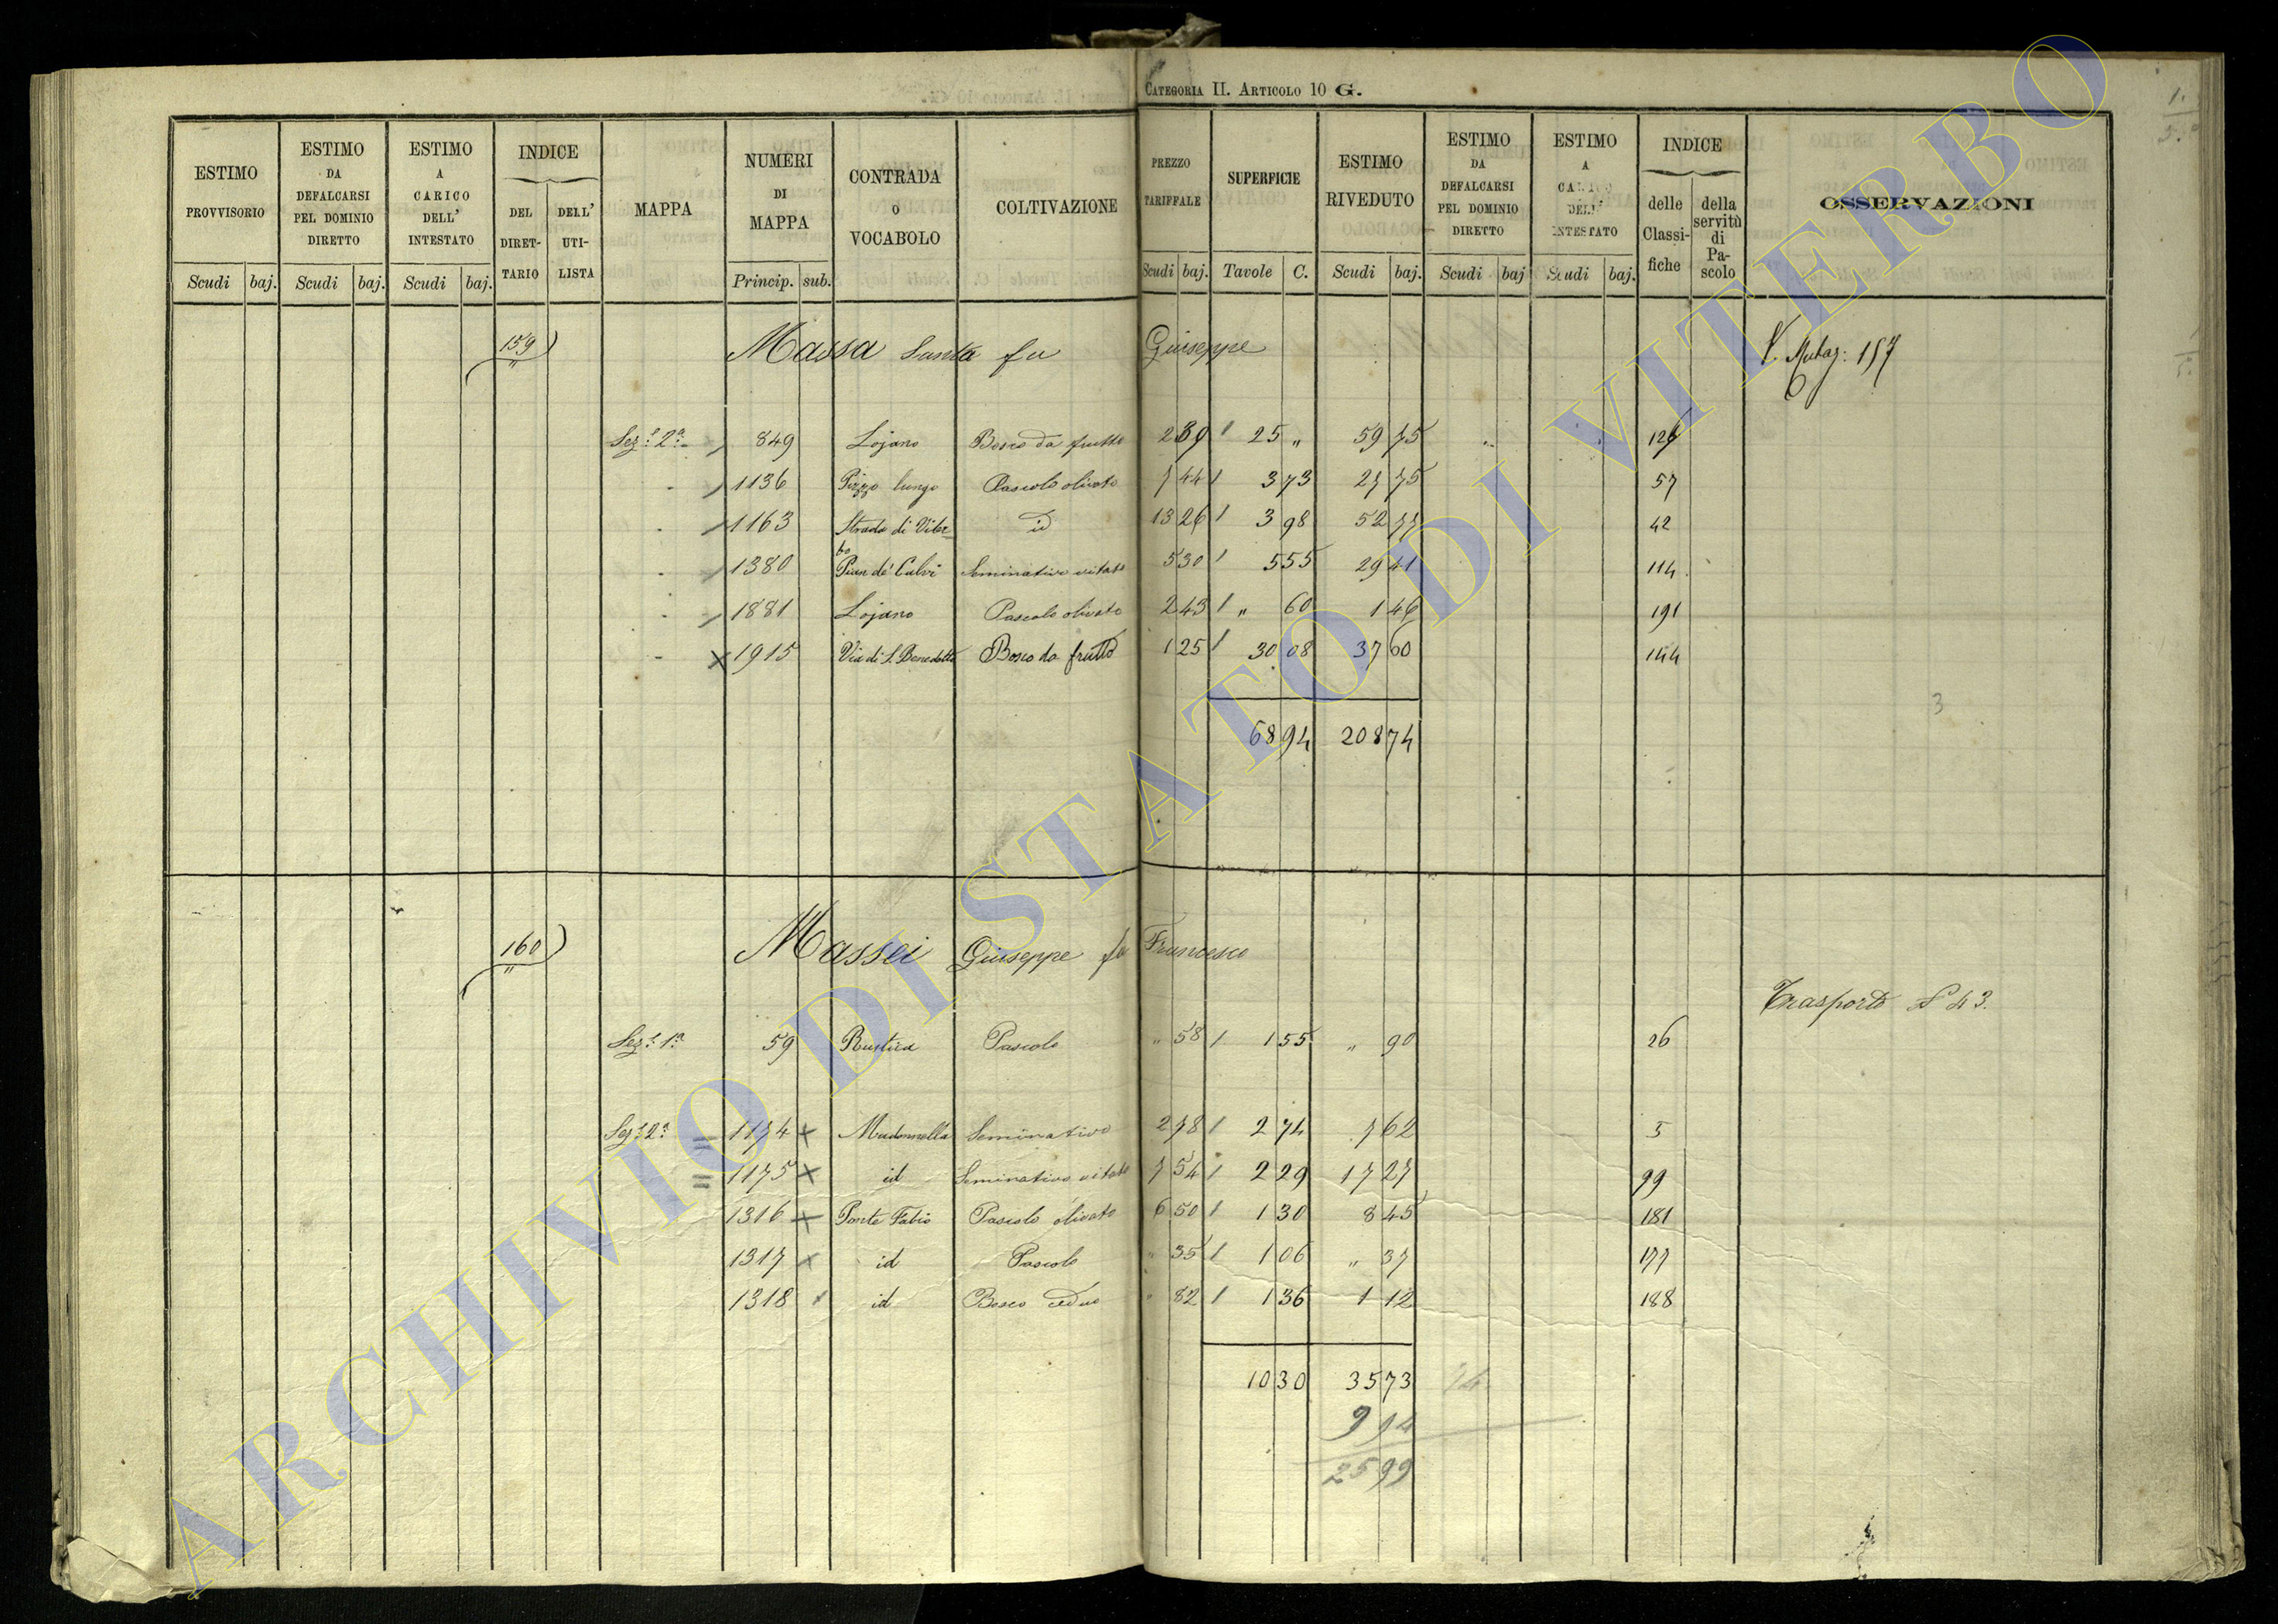 CATEGORIA II. ARTICOLO 10 G.
ESTIMO PROVVISORIO | ESTIMO DA DEFALCARSI PEL DOMINIO DIRETTO | ESTIMO A CARICO DELL' INTESTATO | INDICE DEL DIRETTARIO | DELL' UTILISTA | MAPPA | NUMERI DI MAPPA | CONTRADA O VOCABOLO | COLTIVAZIONE | PREZZO TARIFFALE | SUPERFICIE | ESTIMO RIVEDUTO | ESTIMO DA DEFALCARSI PEL DOMINIO DIRETTO | ESTIMO A CARICO DELL' INTESTATO | INDICE delle Classifiche | della servitù di Pascolo | OSSERVAZIONI
Scudi baj. Scudi baj. Scudi baj. Princip. sub. Scudi baj. Tavole C. Scudi baj. Scudi baj Scudi baj.
159 Massa Santa fu Giuseppe V. Mutaz: 157
Sez.e 2a 849 Lojano Bosco da frutto 2 39 25 „ 59 75 126
1136 Pizzo lungo Pascolo olivato 7 44 3 73 27 75 57
1163 Strada di Viterbo id 13 26 3 98 52 77 42
1380 Pian de' Calvi Seminativo vitato 5 30 5 55 29 41 114
1881 Lojano Pascolo olivato 2 43 „ 60 1 46 191
1915 Via di S. Benedetto Bosco da frutto 1 25 30 08 37 60 144
3
68 94 208 74
160 Massei Giuseppe fu Francesco
Trasporto N 43.
Sez.e 1a 59 Rustica Pascolo „ 58 1 55 „ 90 26
Sez.e 2a 1174 Madonnella Seminativo 2 78 2 74 7 62 5
1175 id Seminativo vitato 7 54 2 29 17 27 99
1316 Ponte Fabio Pascolo olivato 6 50 1 30 8 45 181
1317 id Pascolo „ 35 1 06 „ 37 177
1318 id Bosco ceduo „ 82 1 36 1 12 188
10 30 35 73
9 74
25 99
ARCHIVIO DI STATO DI VITERBO